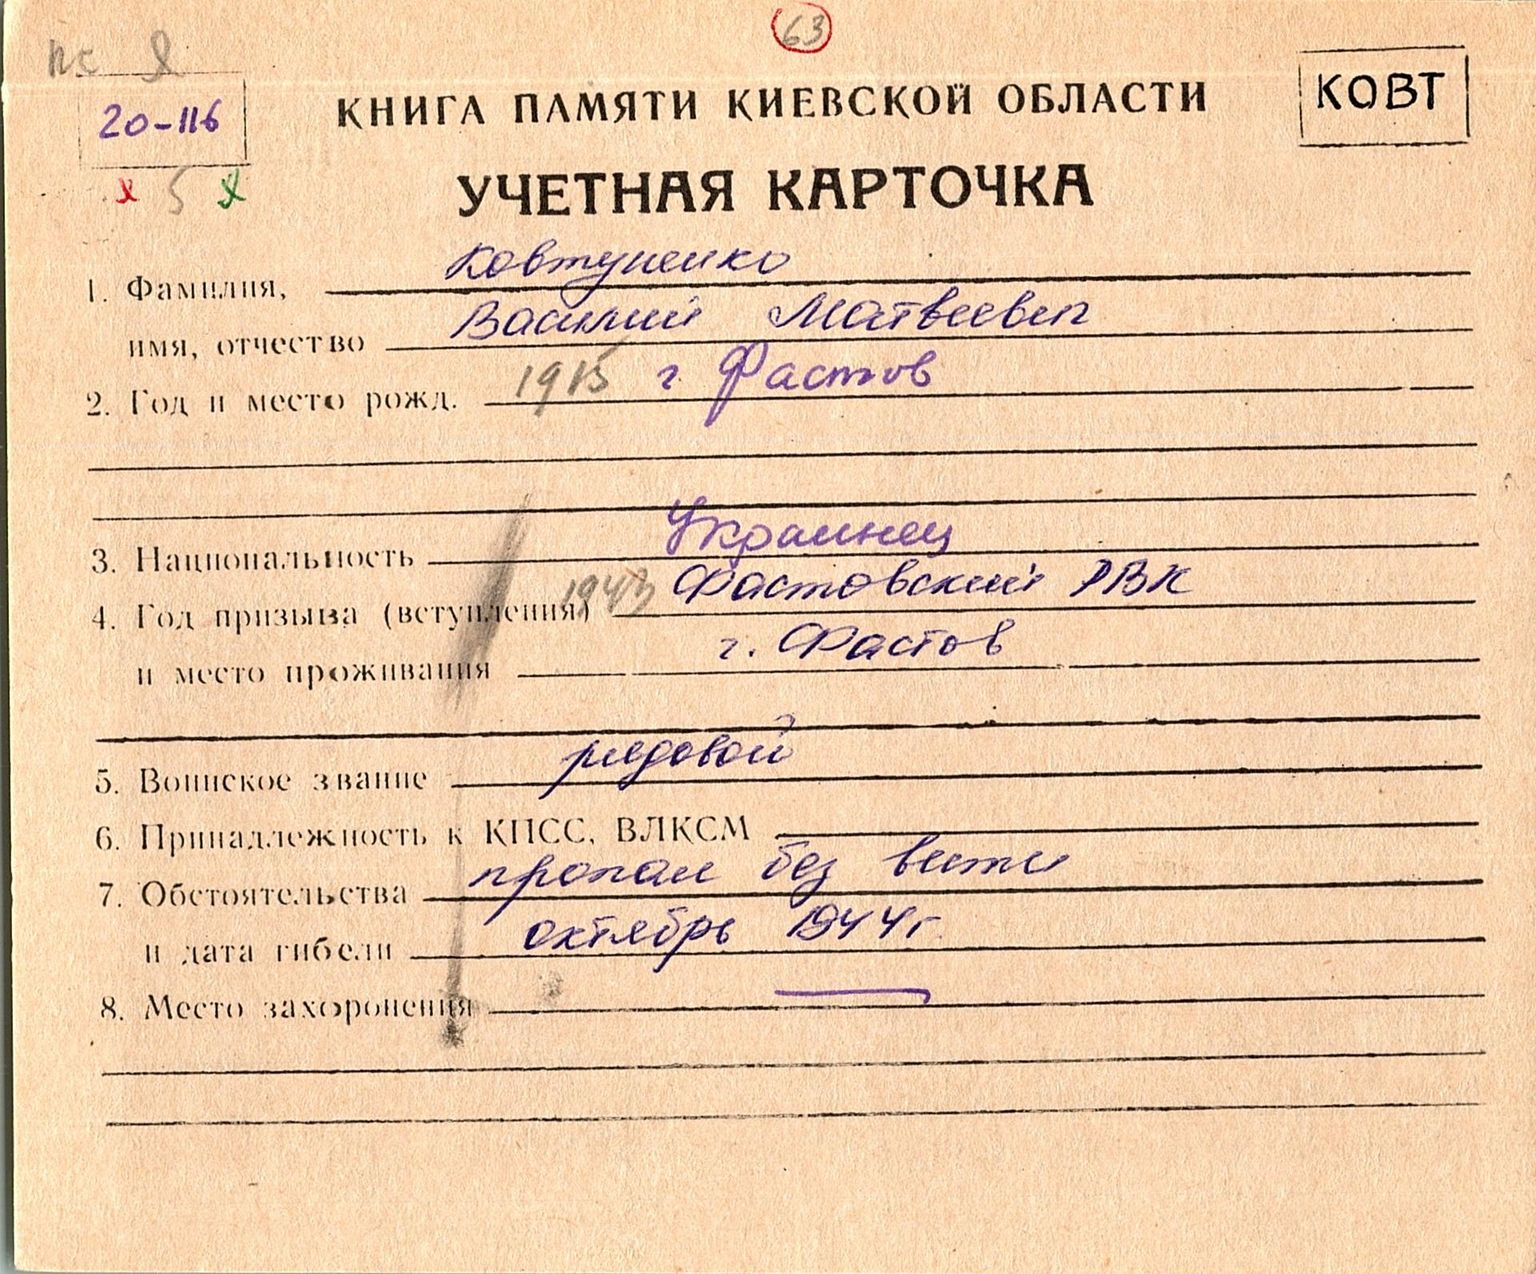 63
КОВТ
20-116
КНИГА ПАМЯТИ КИЕВСКОЙ ОБЛАСТИ
5
УЧЕТНАЯ КАРТОЧКА
1. Фамилия, Ковтуненко
имя, отчество Василий Матвеевич
2. Год и место рожд. 1915 г Фастов
3. Национальность Украинец
4. Год призыва (вступления) 1943 Фастовский РВК
и место проживания г. Фастов
5. Воинское звание рядовой
6. Принадлежность к КПСС, ВЛКСМ
7. Обстоятельства пропал без вести
и дата гибели октябрь 1944г
8. Место захоронения —